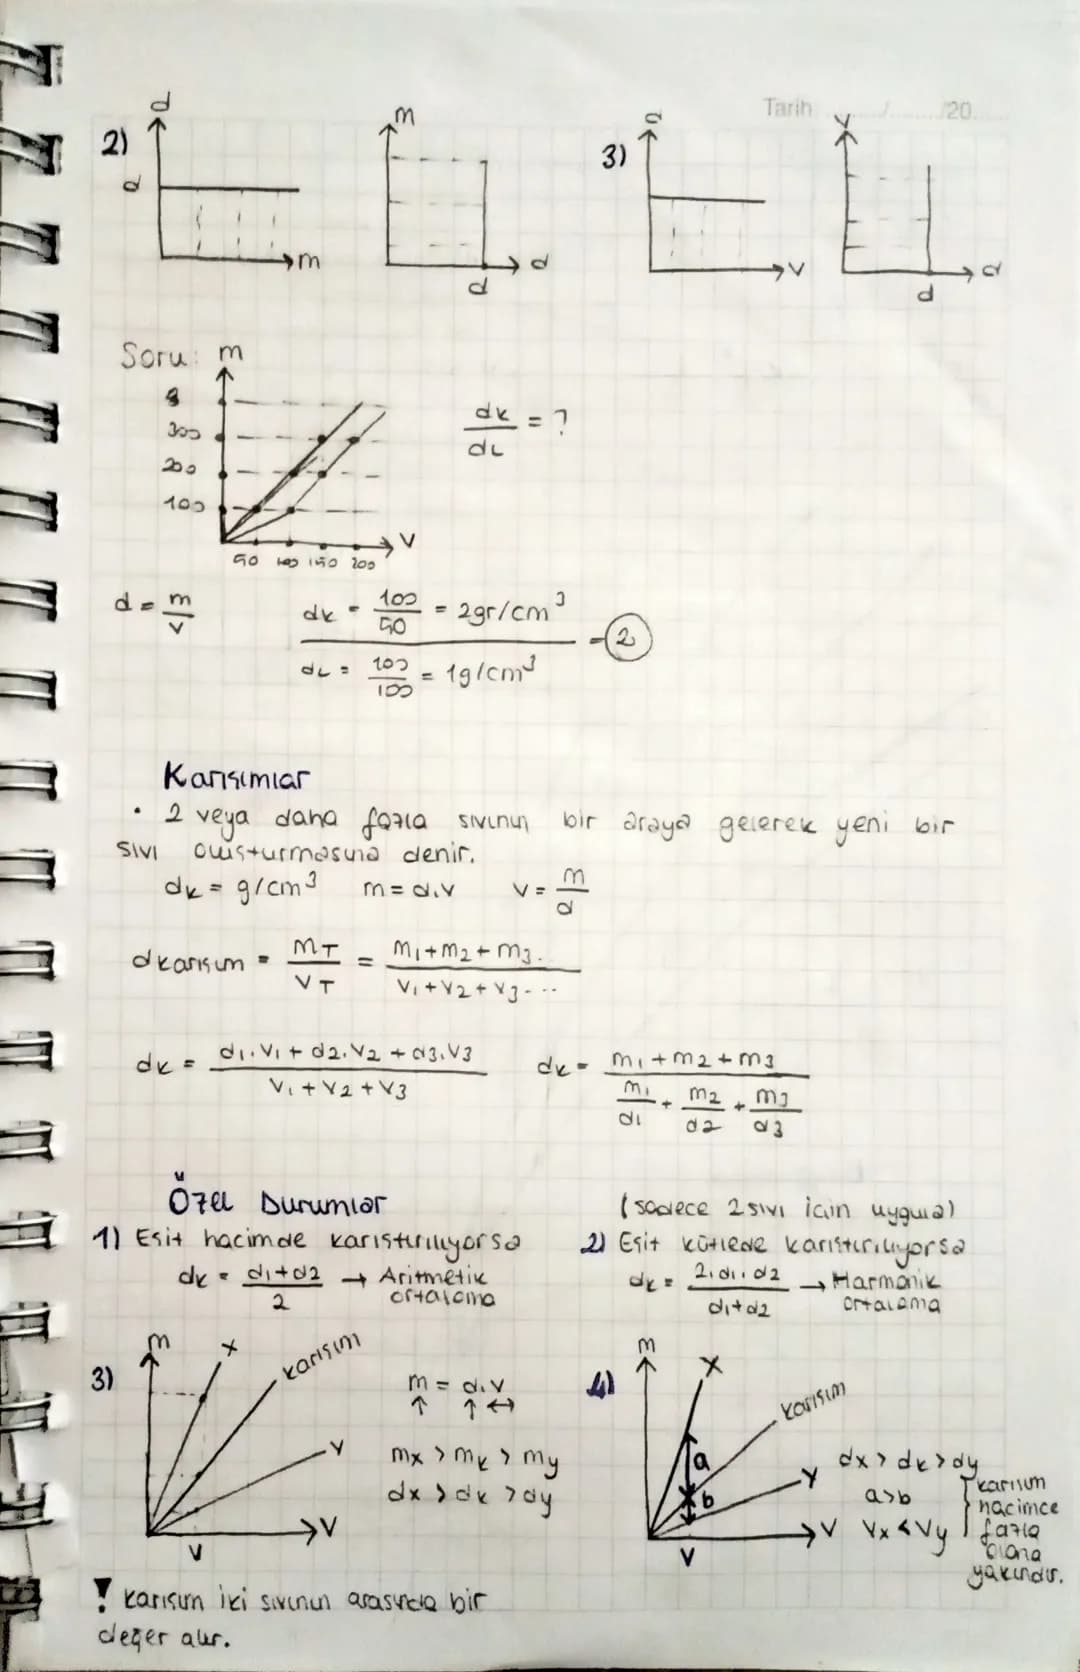 Tarih ....../....../20......
2) d d m
m d d
3) d v
v d d
Soru: m
300
200
100
50 100 150 200 v
dk/dL = ?
d = m/v
dk = 100/50 = 2gr/cm³
dL = 100/100 = 1g/cm³
= 2
Karışımlar
• 2 veya daha fazla sıvının bir araya gelerek yeni bir
sıvı oluşturmasına denir.
dk = g/cm³ m = d.v v = m/d
dkarışım = mT/VT = m₁+m₂+m₃.. / V₁+V₂+V₃...
dk = d₁.V₁ + d₂.V₂ + d₃.V₃ / V₁+V₂+V₃
dk = m₁+m₂+m₃ / m₁/d₁ + m₂/d₂ + m₃/d₃
Özel Durumlar
1) Eşit hacimde karıştırılıyorsa
dk = d₁+d₂/2 → Aritmetik
ortalama
(sadece 2 sıvı için uygula)
2) Eşit kütlede karıştırılıyorsa
dk = 2.d₁.d₂/d₁+d₂ → Harmonik
ortalama
3) m x karışım y v v
m = d.v
↑ ↑ ↔
mx > mk > my
dx > dk > dy
4) m x karışım y a b v v
dx > dk > dy
a>b
Vx < Vy
karışım
hacimce
fazla
olana
yakındır.
! karışım iki sıvının arasında bir
değer alır.